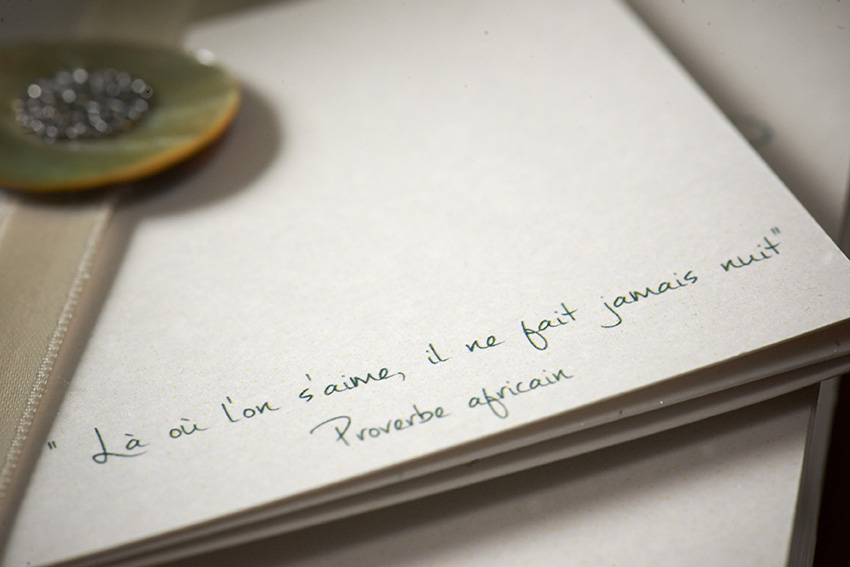 " Là où l'on s'aime, il ne fait jamais nuit"
Proverbe africain